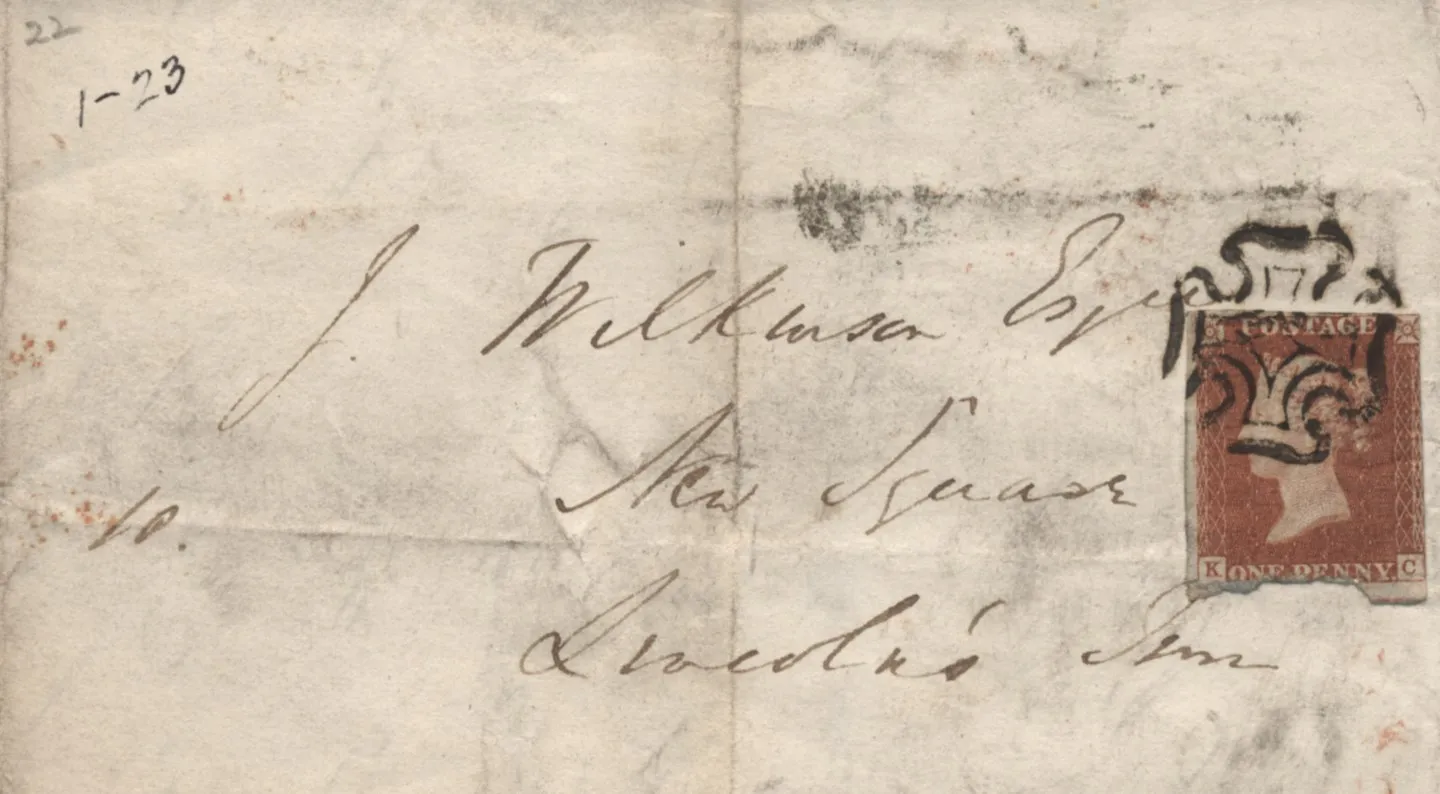 22
1-23
J. Wilkinson Esqre
10. New Square
Lincoln's Inn
17
POSTAGE
K ONE PENNY. C